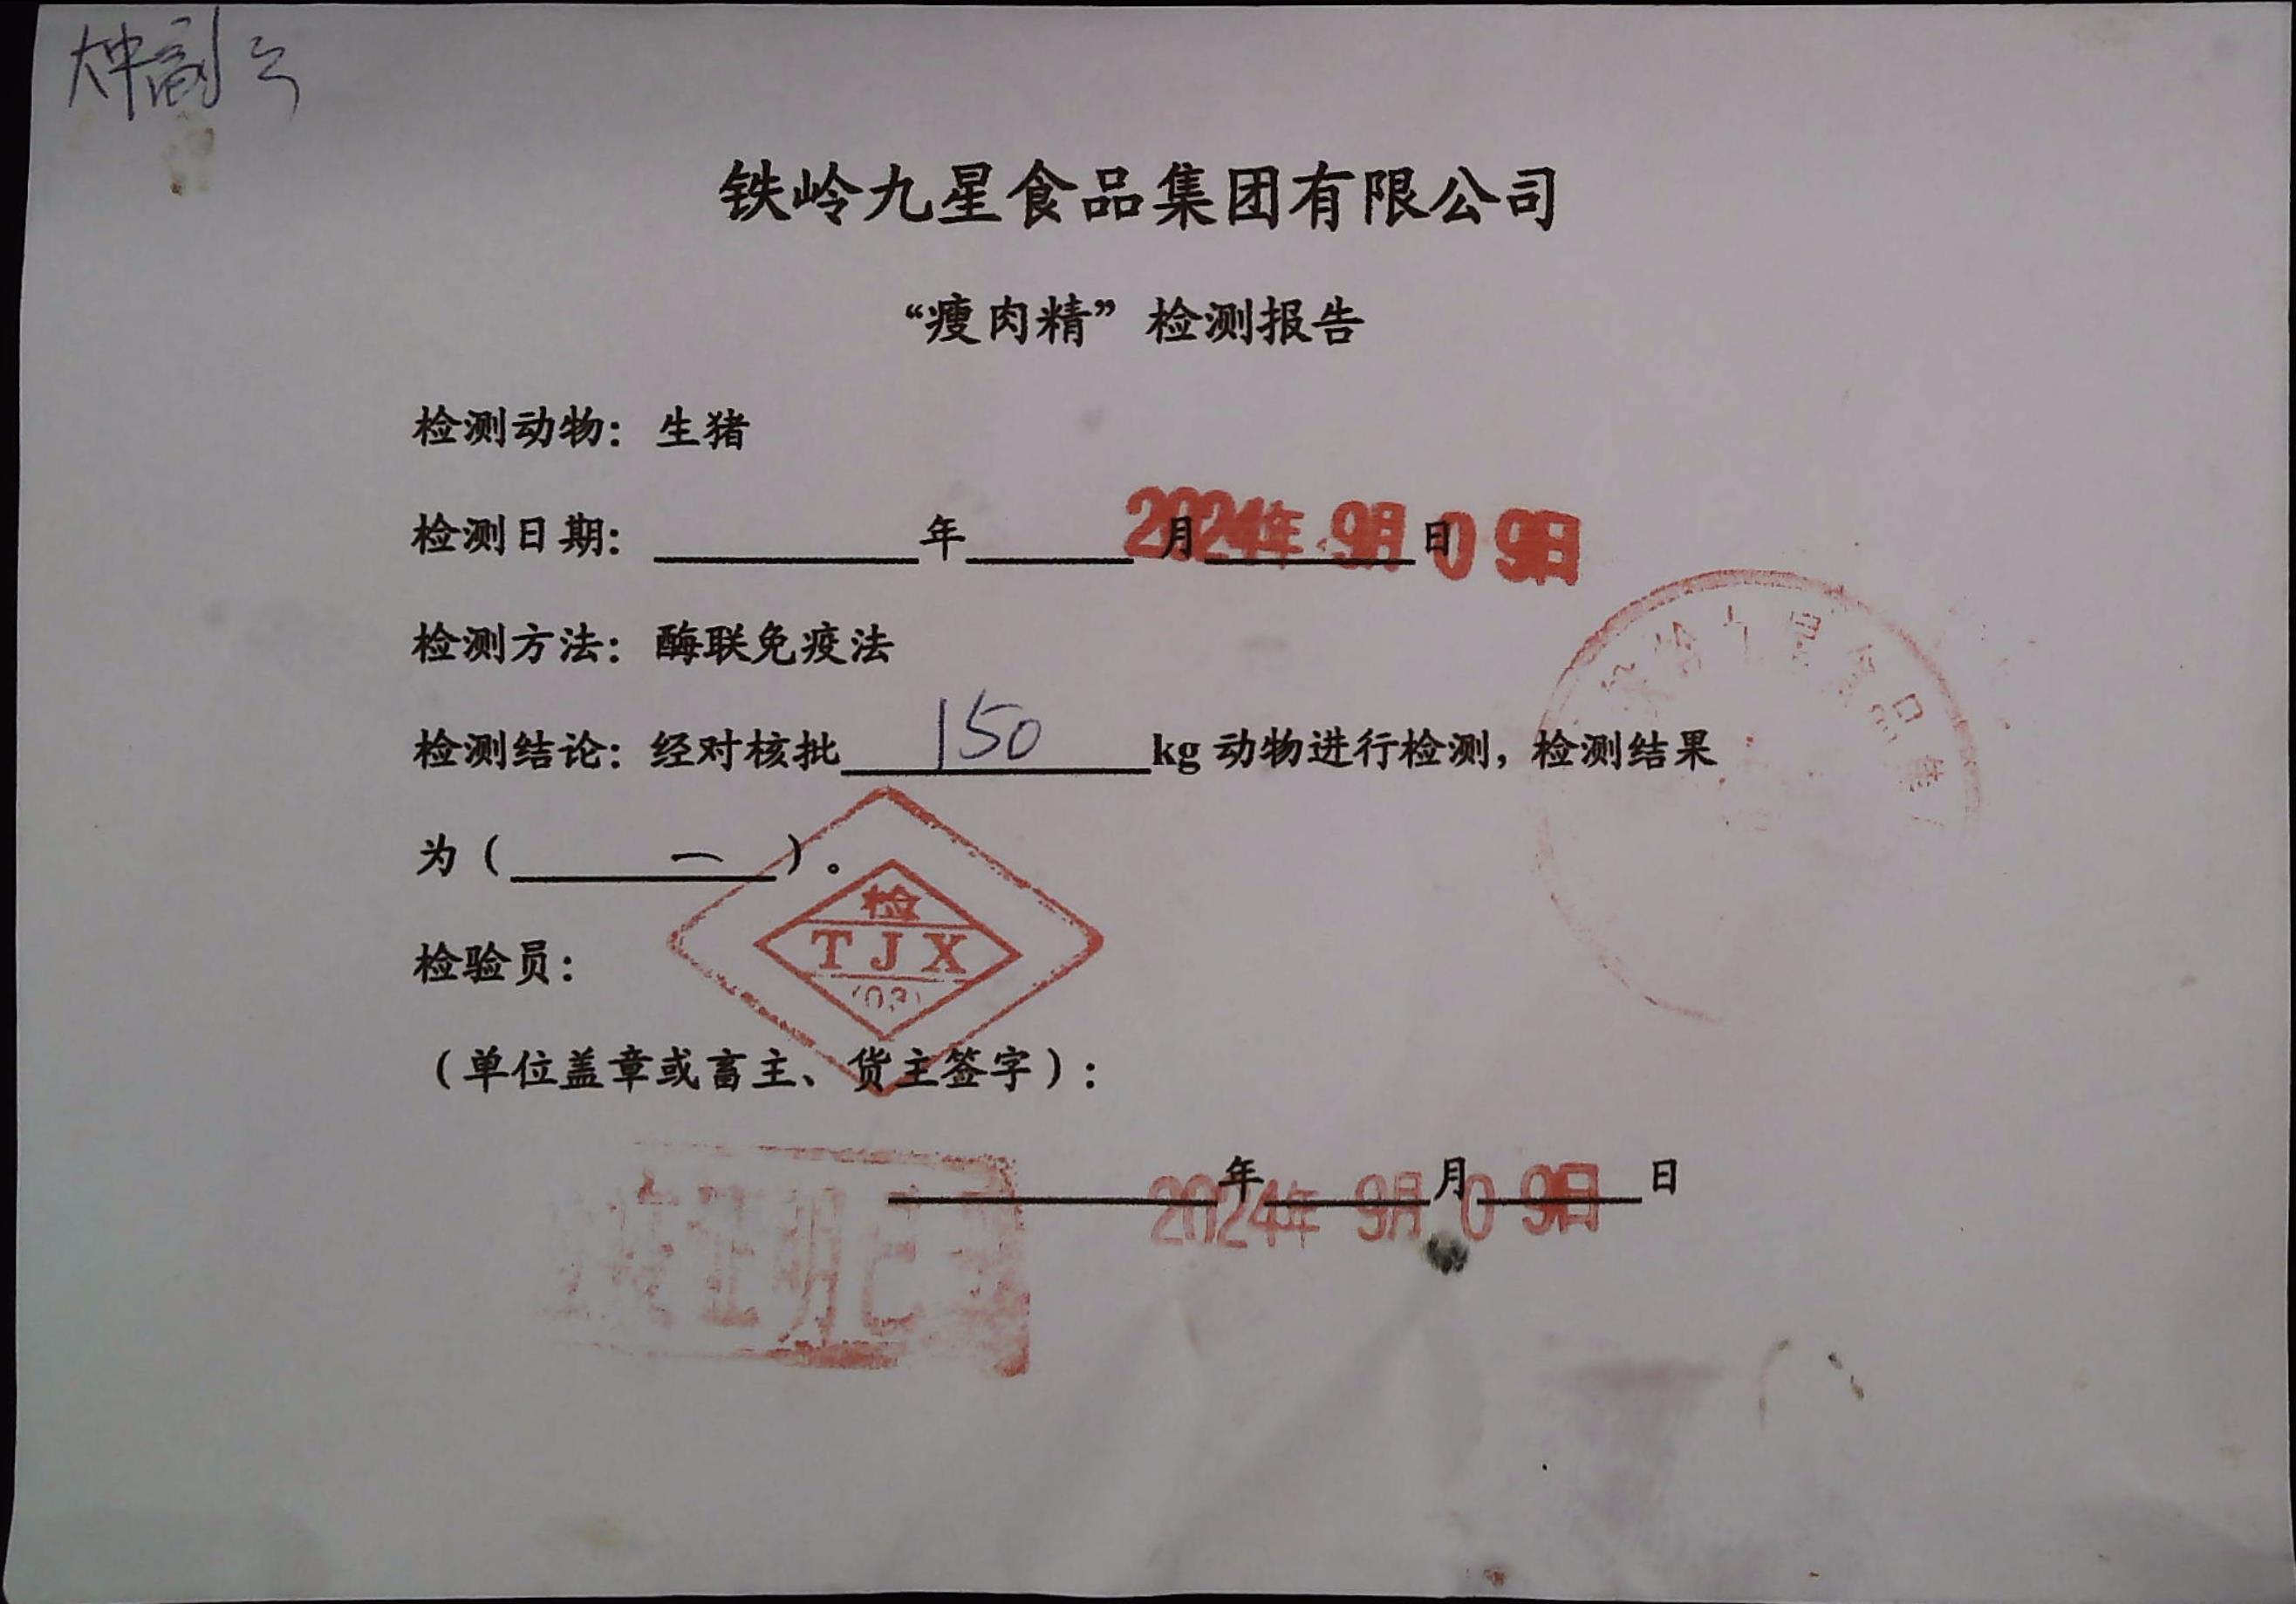 铁岭九星食品集团有限公司
“瘦肉精”检测报告
检测动物：生猪
检测日期：年月日
2024年9月09日
检测方法：酶联免疫法
检测结论：经对核批150kg动物进行检测，检测结果
为（一）。
检
TJX
(03)
检验员：
（单位盖章或畜主、货主签字）：
年月日
2024年9月09日
九星食品集
证明已